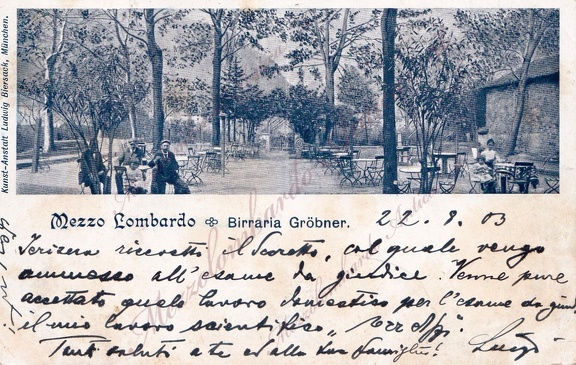 Kunst-Anstalt Ludwig Biersack, München.
Mezzo Lombardo Birraria Gröbner.
22. 8. 03
ricevetti il decreto, col quale vengo
ammesso all'esame da giudice. Venne pure
accettato quale lavoro domestico per l'esame da
il mio lavoro scientifico
Tanti saluti a te ed alla tua famiglia! Luigi